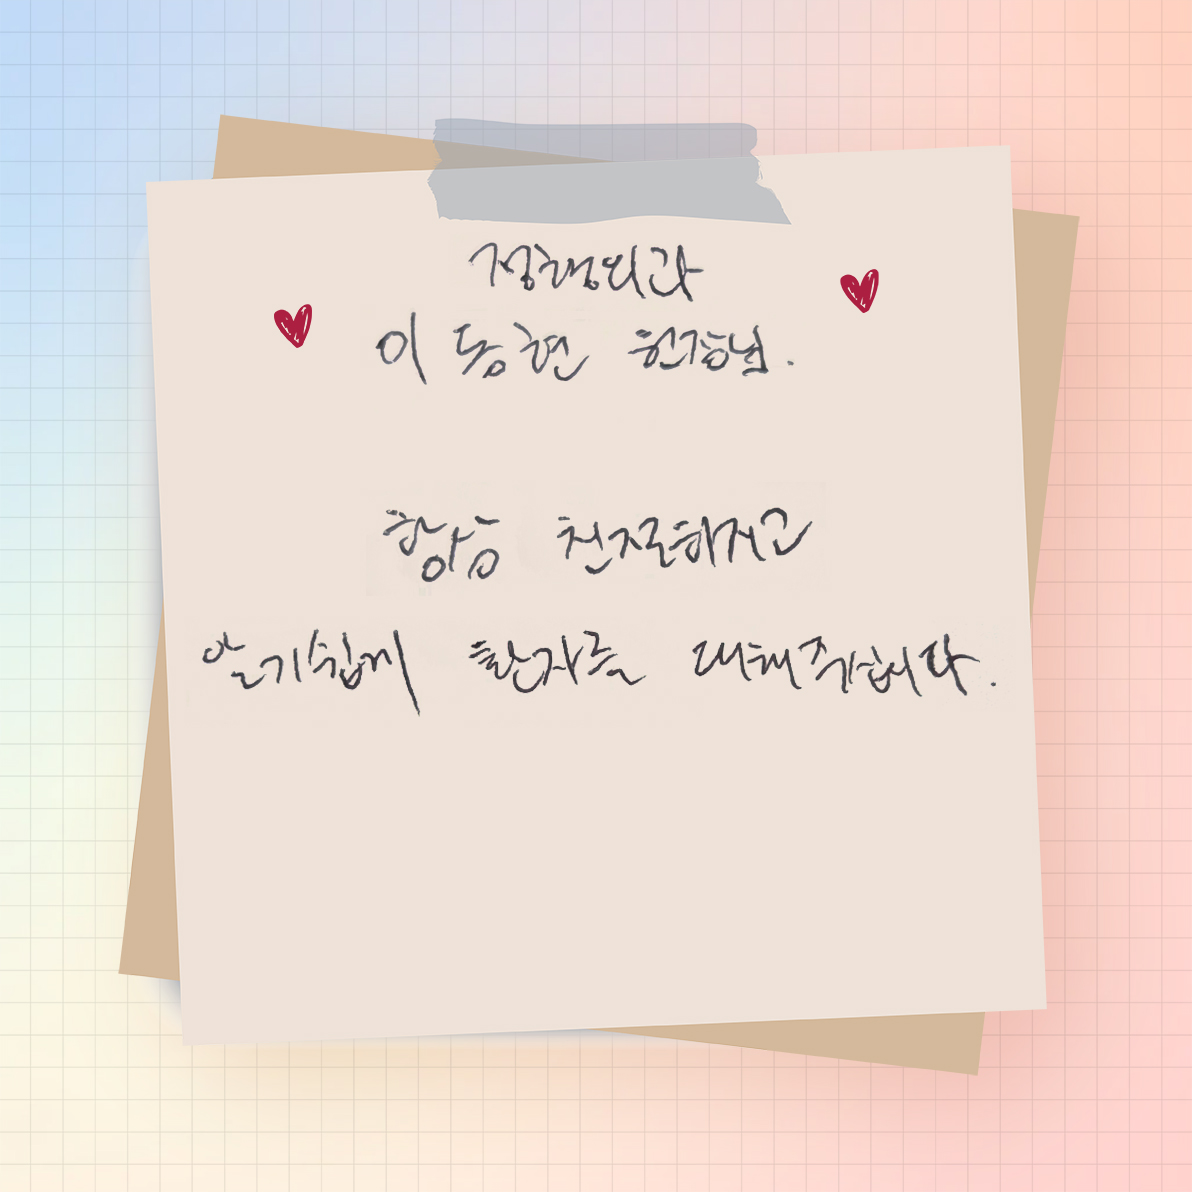 정형외과
이동현 원장님.
항상 친절하시고
알기쉽게 환자를 대해주십니다.